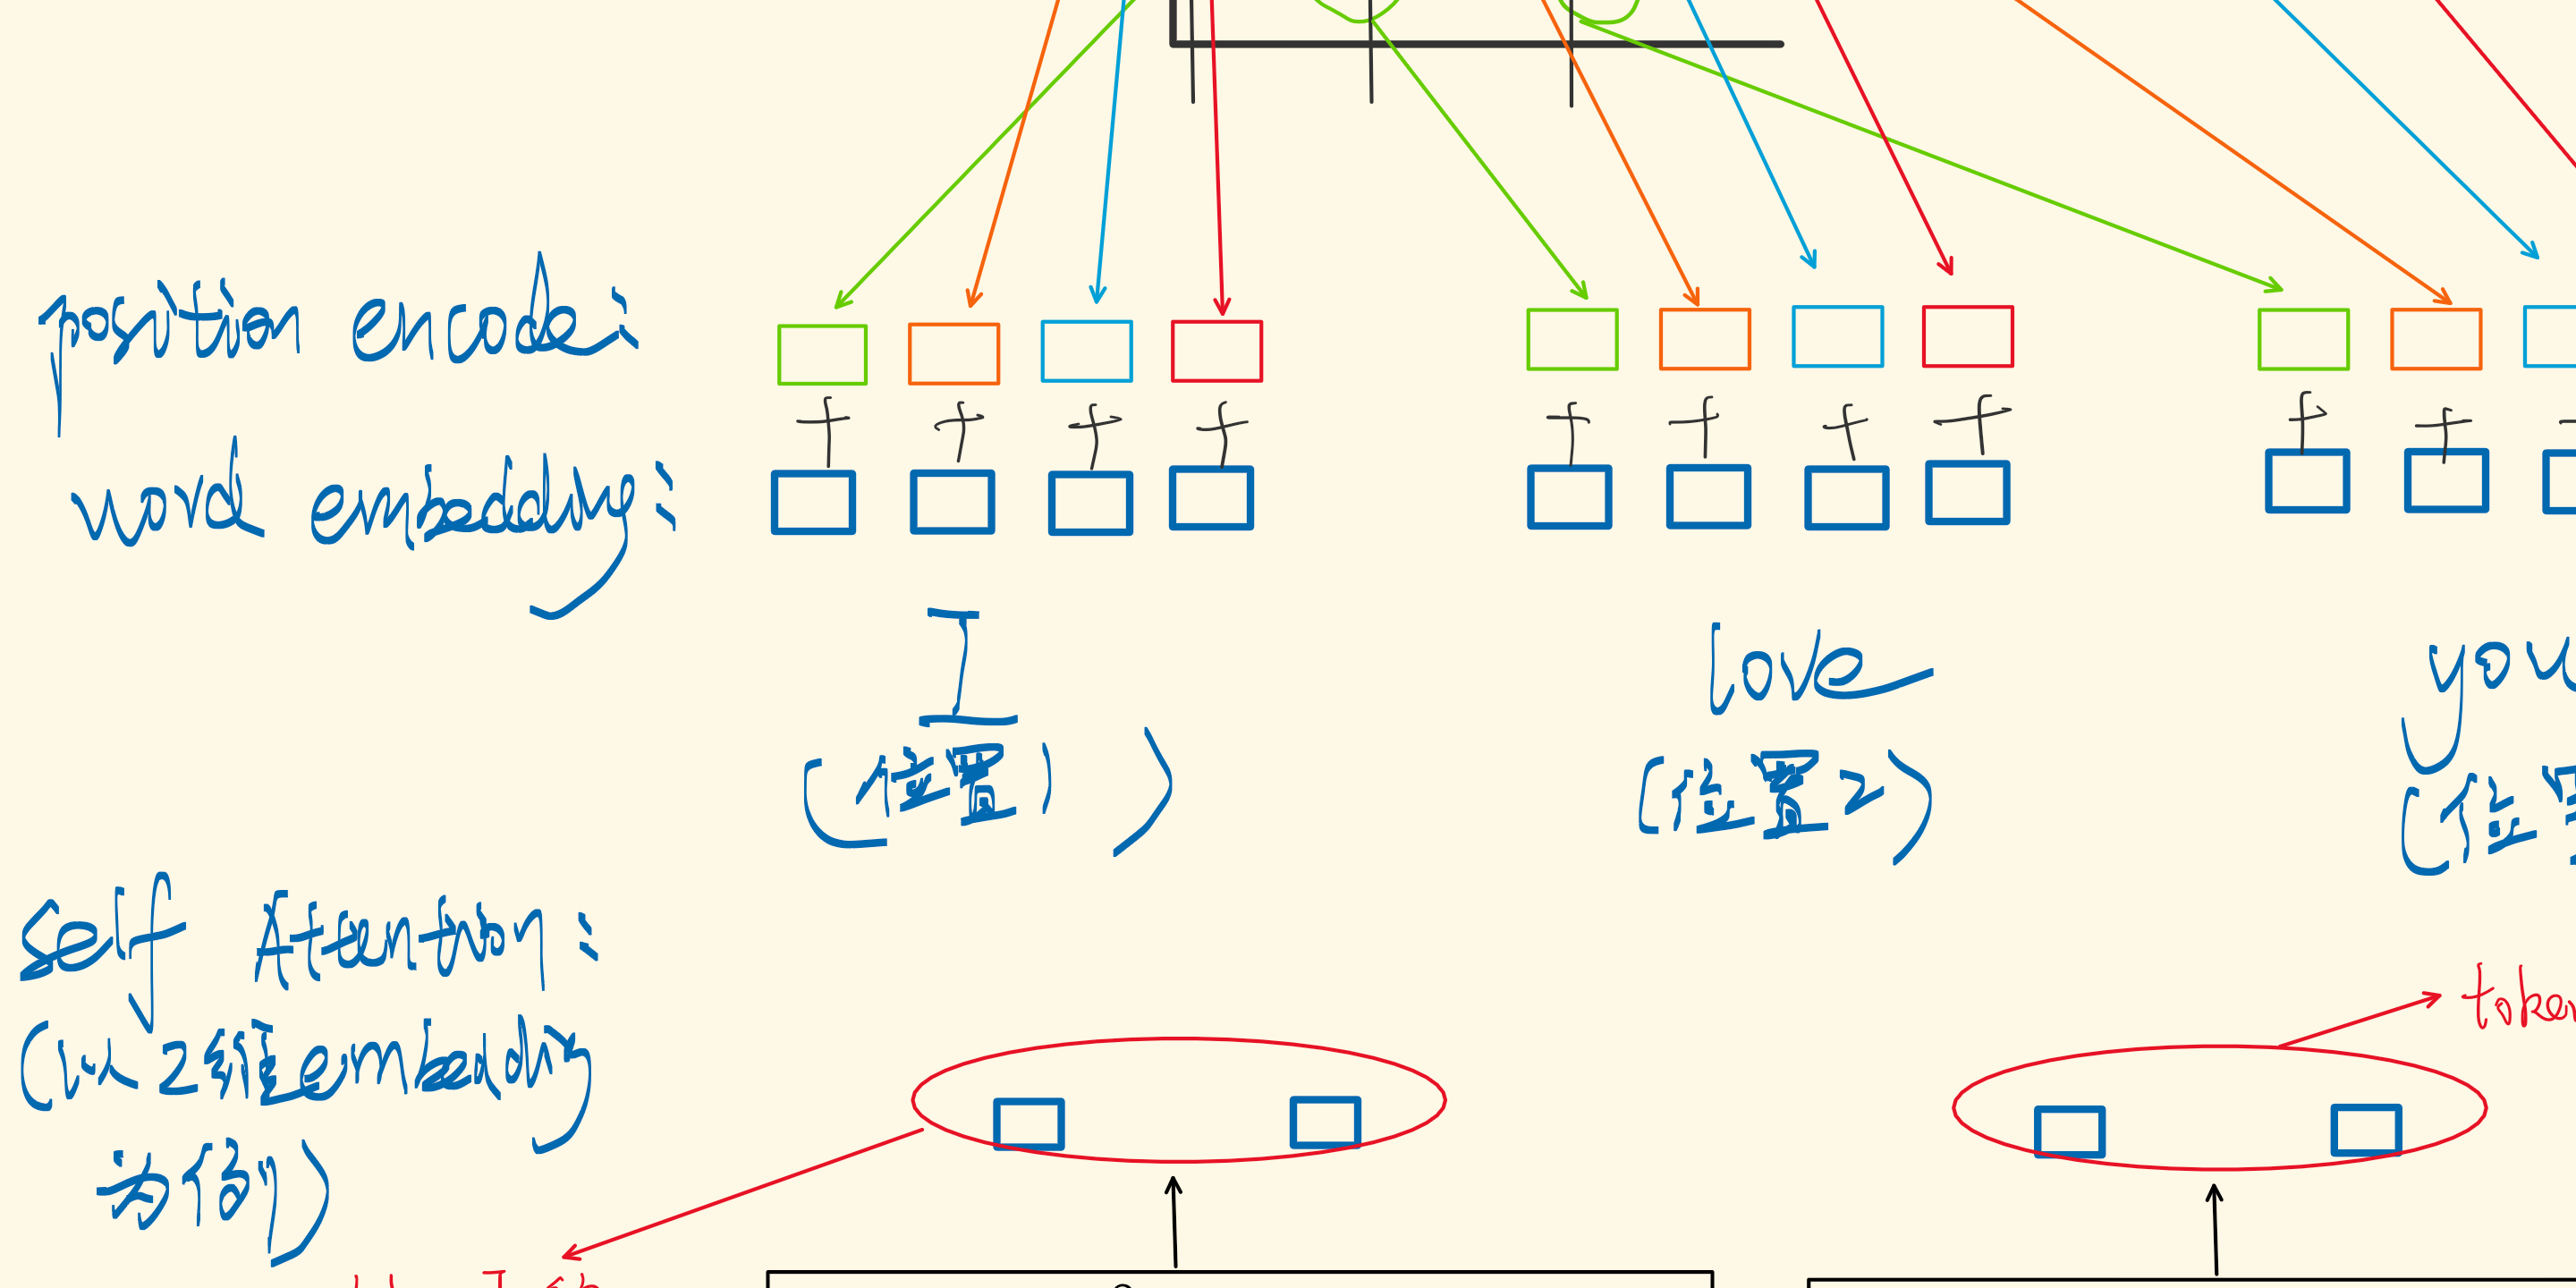 position encode:
word embedding:
I
love
you
(位置1)
(位置2)
(位置
self Attention:
(以2维embedding
为例)
token